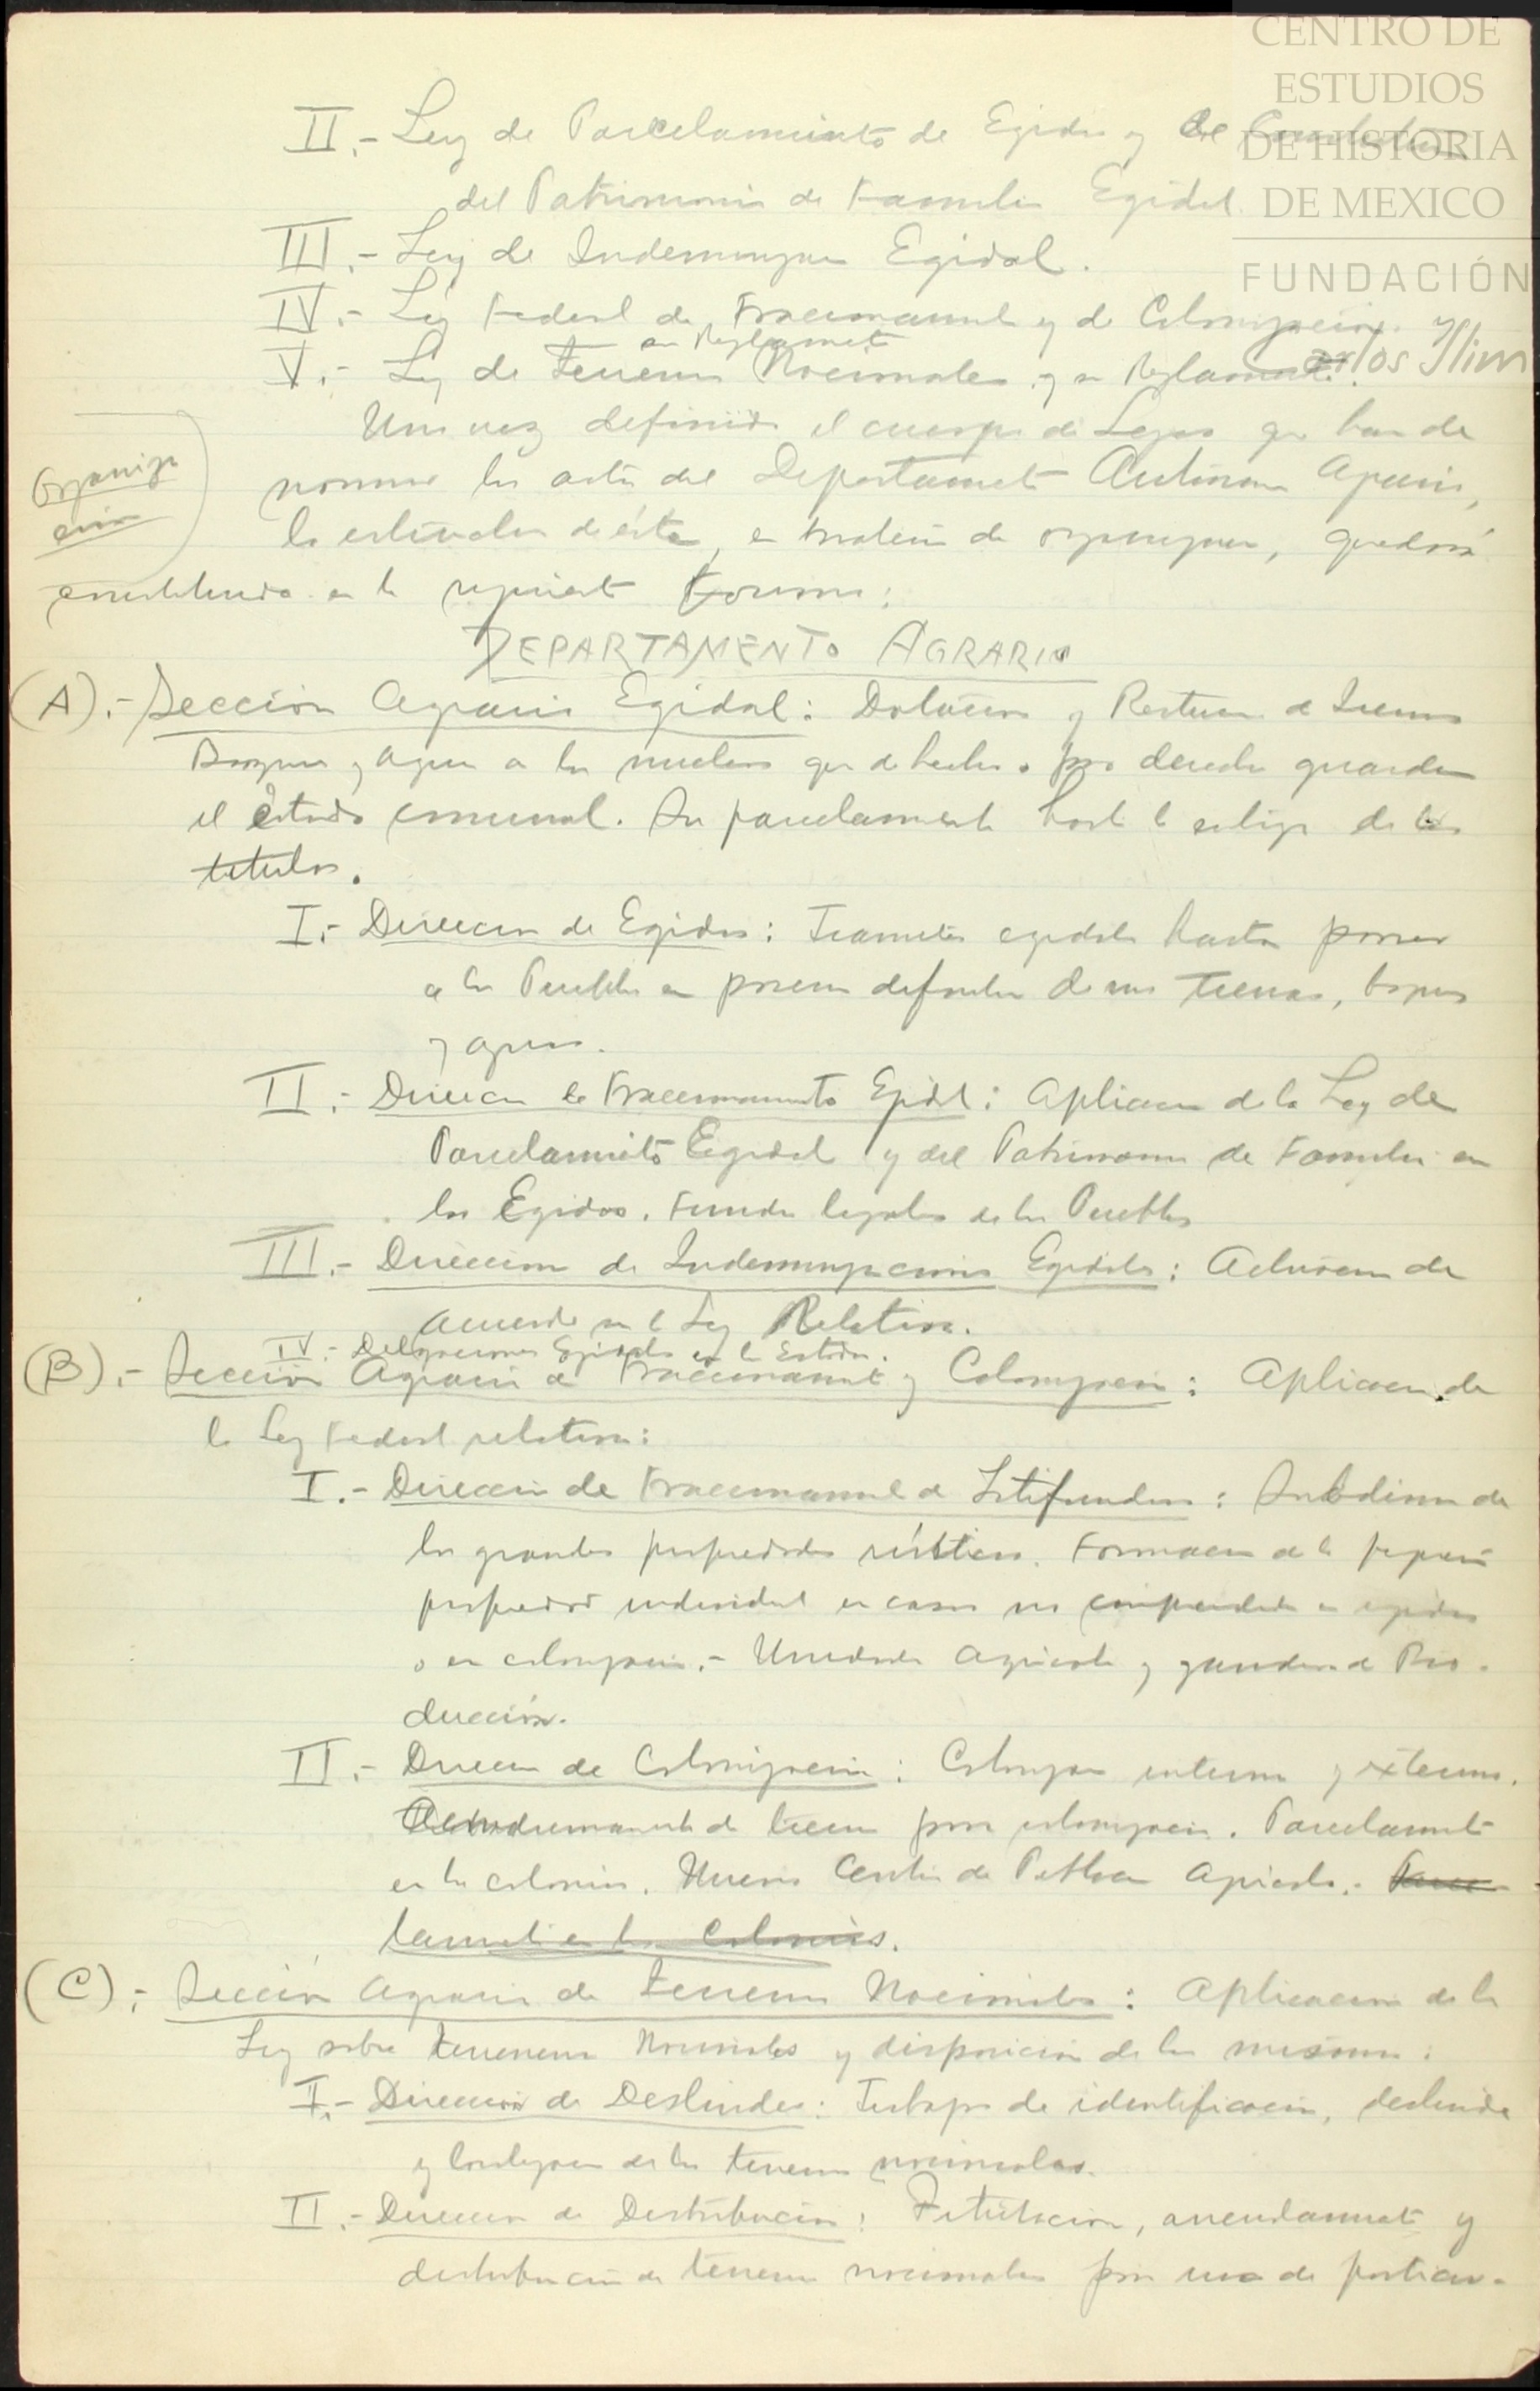 CENTRO DE
ESTUDIOS
DE HISTORIA
DE MEXICO
FUNDACIÓN
Carlos Slim
II.- Ley de Parcelamiento de Egidos y de
del Patrimonio de Familia Egidal.
III.- Ley de Indemnizacion Egidal.
IV.- Ley Federal de Fraccionamiento y de Colonizacion
su Reglamento
V.- Ley de Terrenos Nacionales y su Reglamento.
Una vez definido el cuerpo de Leyes que han de
Organiza
cion
normar los actos del Departamento Autónomo Agrario,
la estructura de éste, en materia de organizacion, quedará
constituida en la siguiente forma:
DEPARTAMENTO AGRARIO
(A).- Seccion Agraria Egidal: Dotacion y Restitucion de Tierras
Bosques y Aguas a los nucleos que de hecho o por derecho guarden
el estado comunal. Su parcelamiento hasta la entrega de los
titulos.
I.- Direccion de Egidos: Tramites egidales hasta poner
a los Pueblos en posesion definitiva de sus tierras, bosques
y aguas.
II.- Direccion de Fraccionamiento Egidal: Aplicacion de la Ley de
Parcelamiento Egidal y del Patrimonio de Familia en
los Egidos. Fundos legales de los Pueblos
III.- Direccion de Indemnizaciones Egidales: Actuacion de
acuerdo con la Ley Relativa.
IV.- Delegaciones Egidales en los Estados.
(B).- Seccion Agraria de Fraccionamiento y Colonizacion: Aplicacion de
la Ley Federal relativa:
I.- Direccion de Fraccionamiento de Latifundios: Subdivision de
las grandes propiedades rústicas. Formacion de la pequeña
propiedad individual en casos no comprendidos en egidos
o en colonizacion.- Unidades Agricolas y ganaderas de Pro-
duccion.
II.- Direccion de Colonizacion: Colonizacion interna y externa.
de tierras para colonizacion. Parcelamiento
en las colonias. Nuevos Centros de Poblacion Agricola.- Parce-
lamiento en las Colonias.
(C).- Seccion Agraria de Terrenos Nacionales: Aplicacion de la
Ley sobre terrenos Nacionales y disposicion de los mismos:
I.- Direccion de Deslindes: Trabajos de identificacion, deslinde
y de los terrenos nacionales.
II.- Direccion de Distribucion: Titulacion, arrendamiento y
distribucion de terrenos nacionales para uso de particu-